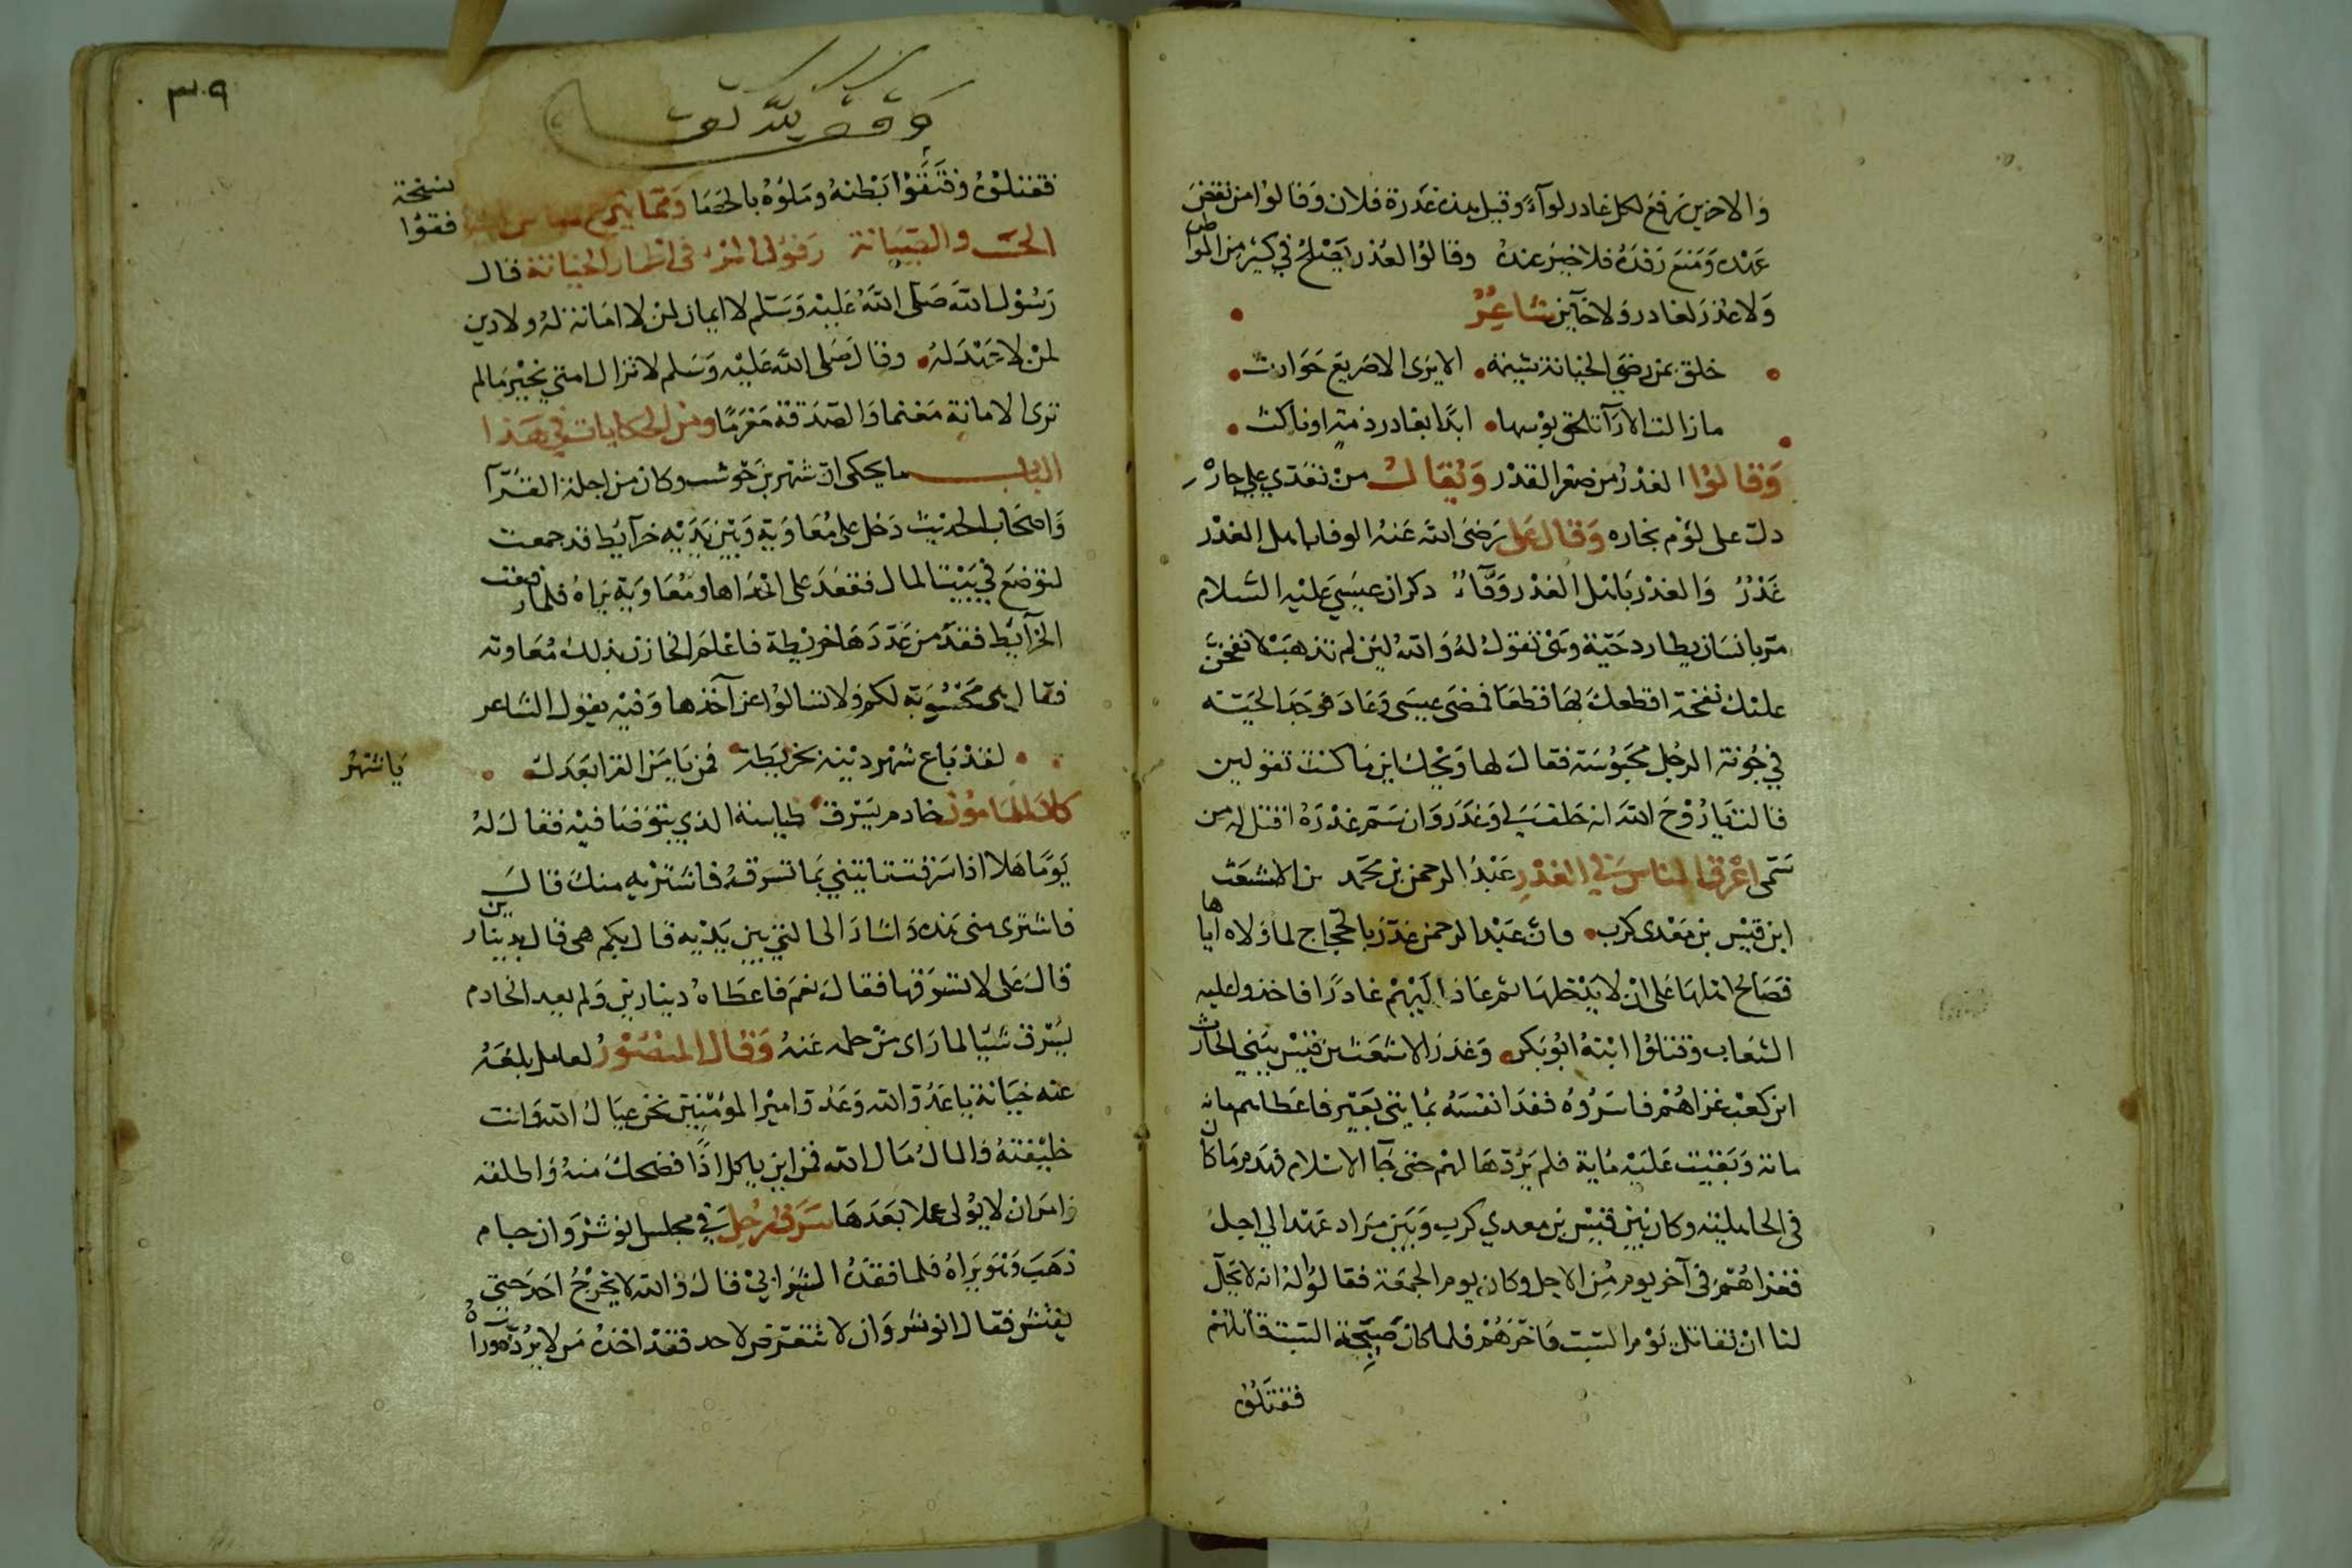 والاخرين يرفع لكل غادر لوآء وقيل هذه غدرة فلان وقالوا من نقض
عهده ومنع رفده فلا خير عنده وقالوا العذر يصلح في كثير من المواطن
ولا عذر لغادر ولا خآين شاعر
خلق بمن رضي الخيانة شيمة الا يرى الا صريع حوادث
مازالت الارآء تلحق بوسها ابدا بغادر ذمة او ناكث
وقالوا الغدر من صغر القدر ويقال من تعدي علي جاره
دل على لؤم نجاره وقال على رضى الله عنه الوفا باهل الغدر
غدر والغدر باهل الغدر وفآء ذكر ان عيسي عليه السلام
مر بانسان يطارد حية وهى تقول له والله لين لم تذهب لانفخن
عليك نفخة اقطعك بها قطعا فمضى عيسى وعاد فوجد الحية
في جونة الرجل محبوسة فقال لها ويحك اين ما كنت تقولين
قالت يا روح الله انه حلف لي وغدر وان سم غدره اقتل له من
سمى اعرق الناس في الغدر عبد الرحمن بن محمد بن الاشعث
ابن قيس بن معدى كرب فان عبد الرحمن غدر بالحجاج لما ولاه اياها
فصالح اهلها على ان لا يدخلها ثم عاد اليهم غادرا فاخذوا عليه
الشعاب وقتلوا ابنه ابو بكر وغدر الاشعث بن قيس ببني الحارث
ابن كعب غزاهم فاسروه ففدا نفسه بمايتى بعير فاعطاهم مانه
مانة وبقيت عليه ماية فلم يردها لهم حتى جآ الاسلام فهدم ما كان
فى الجاهلية وكان بين قيس بن معدي كرب وبين مراد عهدا الي اجل
فغزاهم فى آخر يوم من الاجل وكان يوم الجمعة فقالوا له انه لا يحل
لنا ان نقاتل يوم السبت فاخرهم فلما كان صبيحة السبت قاتلهم
فقتلوه
٣٠٩
وقف لله تعا
فقتلوه وفتقوا بطنه وملؤه بالحصا ومما
نسخة
فقوا
الخيانة قال
رسول الله صلى الله عليه وسلم لا ايمان لمن لا امانة له ولا دين
لمن لا عهد له وقال صلى الله عليه وسلم لا تزال امتي بخير مالم
ترى الامانة مغنما والصدقة مغرما ومن الحكايات في هذا
الباب ما يحكى ان شهر بن حوشب وكان من اجلة القرآ
واصحاب الحديث دخل على معاوية وبين يديه خرآيط قد جمعت
لتوضع في بيت المال فقعد على احداها ومعاوية يراه فلما رفعت
الخرآيط فقد من عددها خريطة فاعلم الخازن بذلك معاوية
فقال هى محسوبة لكم ولا تسالوا عن آخذها وفيه يقول الشاعر
لقد باع شهر دينه بخريطة فمن يا من القرا بعدك
يا شهر
كان للمامون خادم يسرق طياسة الذي يتوضا فيه فقال له
يوما هلا اذا سرقت تاتيني بما تسرقه فاشتريه منك قال
فاشترى منى هذه واشار الى التي بين يديه قال بكم هى قال بدينارين
قال على لا تسرقها فقال نعم فاعطاه دينارين ولم يعد الخادم
يسرق شيا لما راى من حلمه عنه وقال المنصور لعامل بلغه
عنه خيانة يا عدو الله وعدو امير المؤمنين نحن عيال الله وانت
خليفته والمال مال الله فمن اين ياكل اذا فضحك منه واطلقه
وامر ان لا يولى عملا بعدها سرق رجل في مجلس انوشروان جام
ذهب وهو يراه فلما فقده الشرابي قال والله لا يخرج احد حتي
يفتش فقال انوشروان لا تتعرض لاحد فقد اخذه من لا يرده ورآه